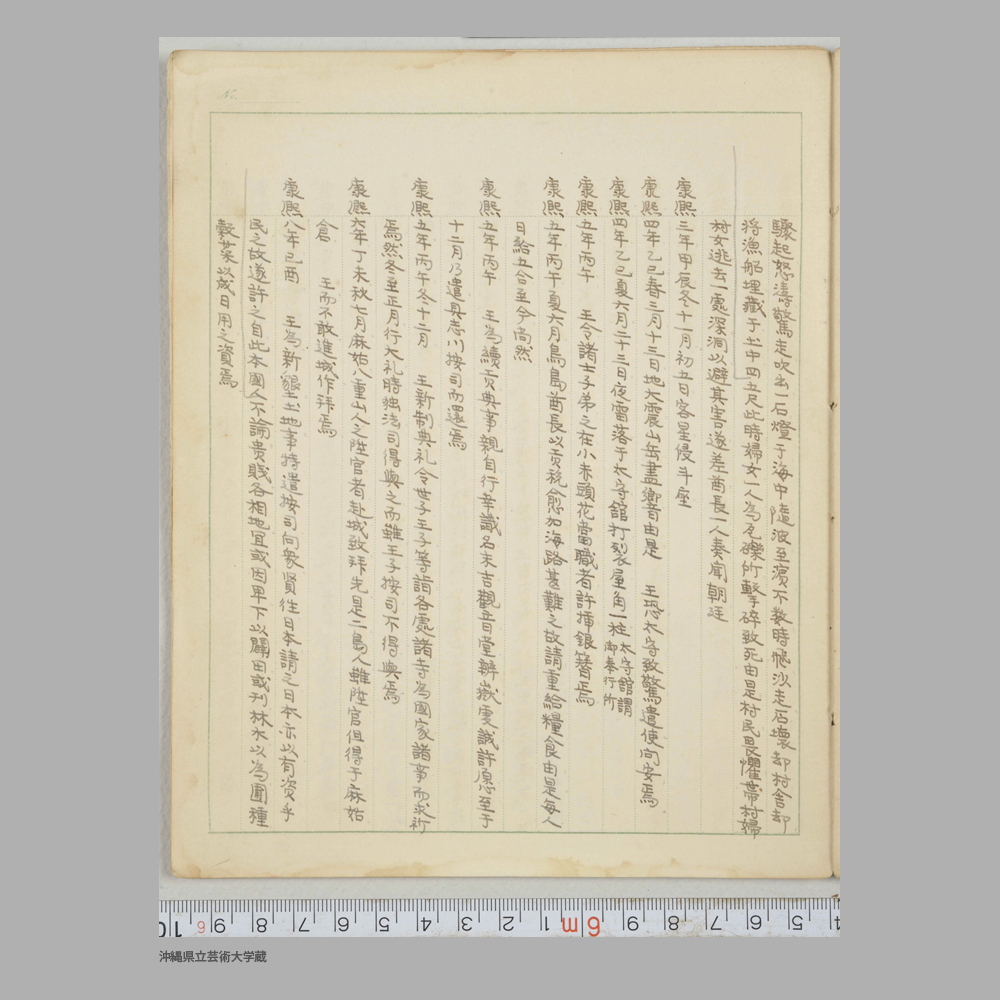 驟起怒濤驚走吹出一石燈于海中隨波至濱不数時飛沙走石壞却村舍却
将漁船埋藏于土中四五尺此時婦女一人為瓦礫所擊碎致死由是村民畏懼帯村婦
村女逃去一處深洞以避其害遂差酋長一人奏聞朝廷
康熙三年甲辰冬十一月初五日客星侵斗座
康熙四年乙巳春三月十三日地大震山岳盡響音由是 王恐太守致驚遣使向安焉
康熙四年乙巳夏六月二十三日夜雷落于太守館打裂屋角一柱 太守館謂御奉行所
康熙五年丙午 王令諸士子弟之在小赤頭花當職者許挿銀簪焉
康熙五年丙午夏六月鳥島酋長以貢税愈加海路甚難之故請重給糧食由是每人
日給五合至今尚然
康熙五年丙午 王為續貢典事親自行幸識名末吉觀音堂辨嶽虔誠許愿至于
十二月乃遣具志川按司而還焉
康熙五年丙午冬十二月 王新制典礼令世子王子等詣各處諸寺為國家諸事而求祈
焉然冬至正月行大礼時独法司得與之而雖王子按司不得與焉
康熙六年丁未秋七月麻姑八重山人之陞官者赴城致拜先是二島人雖陞官但得于麻姑
倉 王而不敢進城作拜焉
康熙八年己酉 王為新墾土地事特遣按司向象賢往日本請之日本亦以有資乎
民之故遂許之自此本國人不論貴賎各相地宜或因卑下以闢田或刊林木以為圃種
穀菜以成日用之資焉
10 9 8 7 6 5 4 3 2 1 6m 9 8 7 6 5 4
沖縄県立芸術大学蔵